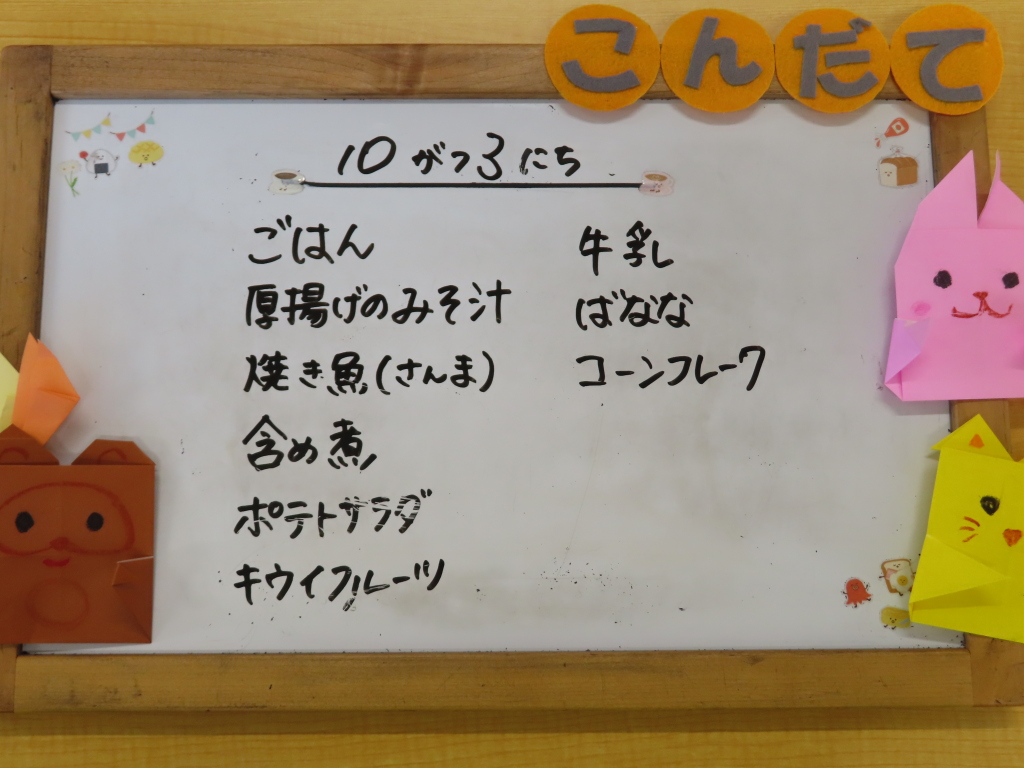 こんだて
10がつ3にち
ごはん
厚揚げのみそ汁
焼き魚(さんま)
含め煮
ポテトサラダ
キウイフルーツ
牛乳
ばなな
コーンフレーク